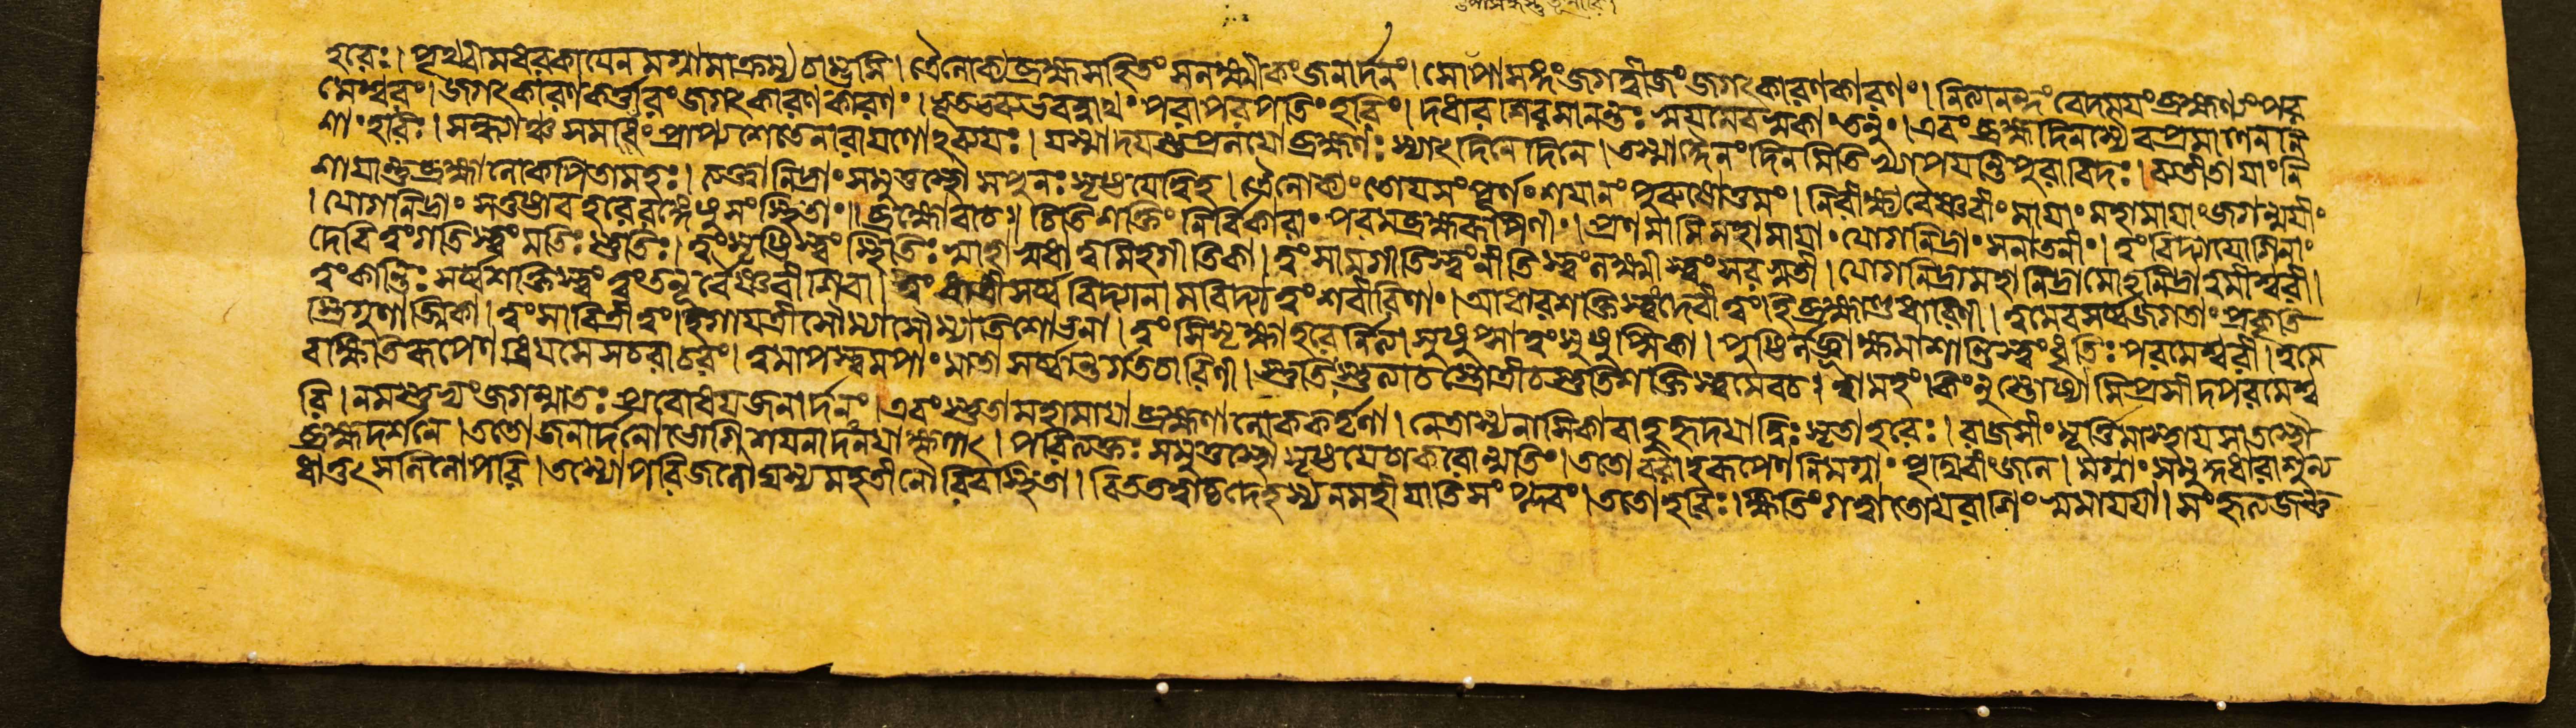 হরেঃ। পৃথিবীমধরকায়েন মগ্নামাক্রম্য চাস্তুসি। ত্রৈলোক্যব্রহ্মসহিতং সলক্ষ্মীকং জনার্দনং। সোপাসঙ্গং জগদ্বীজং জগৎকারণকারণং। নিত্যানন্দং বেদময়ং ব্রহ্মণ্যং পর
মেশ্বরং। জগৎকারণকর্ত্তারং জগৎকারণকারণং। ভূতভবদ্ভবন্নাথং পরাপরপতিং হরিং।
শাং হরিঃ। প্রাপ্য শেতে নারায়ণোহব্যয়ঃ। দিনে দিনে। তস্মাদ্দৈনংদিনমিতি খ্যাপয়ন্তি পুরাবিদঃ। ব্যতীতায়াং নি
শায়ান্তু ব্রহ্মা লোকপিতামহঃ। ত্যক্ত্বা নিদ্রাং সমুত্তস্থৌ স পুনঃ সৃষ্টয়ে হিহ। ত্রৈলোক্যং তোয়সংপূর্ণং শয়ানং পুরুষোত্তমং। নিরীক্ষ্য বৈষ্ণবীং মায়াং মহামায়াং জগন্ময়ীং
। যোগনিদ্রাং স তুষ্টাব হরেরঙ্গেষু সংস্থিতাং॥ ব্রহ্মোবাচ॥ চিতিশক্তিং নির্বিকারাং পরমব্রহ্মরূপিণীং। প্রণমামি মহামায়াং যোগনিদ্রাং সনাতনীং। ত্বং বিদ্যা যোগিনাং
দেবি ত্বং গতিস্ত্বং মতিঃ স্তুতিঃ। ত্বং সৃষ্টিস্ত্বং স্থিতিঃ স্বাহা স্বধা ত্বমিহ গীতিকা। ত্বং সামগীতিস্ত্বং নীতিস্ত্বং লক্ষ্মীস্ত্বং সরস্বতী। যোগনিদ্রা মহানিদ্রা মোহনিদ্রা ত্বমীশ্বরী।
ত্বং কান্তিঃ সর্ব্বশক্তিস্ত্বং ত্বং তনূ র্বৈষ্ণবী শিবা। ত্বং ধাত্রী সর্ব্ববিদ্যানামবিদ্যা ত্বং শর্বারিণাং। আধারশক্তিস্ত্বং দেবী ত্বং হি ব্রহ্মাণ্ডধারিণী। ত্বমেব সর্ব্বজগতাং প্রকৃতি
স্ত্রিগুণাত্মিকা। ত্বং সাবিত্রী ত্বং গায়ত্রী সৌম্যাসৌম্যাতিশোভনা। ত্বং সিসৃক্ষা হরে র্নিত্যা সুষুপ্সা ত্বং সুষুপ্সিকা। পুষ্টির্লজ্জা ক্ষমা শান্তিস্ত্বং ধৃতিঃ পরমেশ্বরী। ত্বমে
ব ক্ষিতিরূপেণ ধ্রিয়সে সচরাচরং। ত্বমাপস্ত্বমপাং মাতা সর্ব্বান্তর্গতচারিণী। স্তুতিঃ স্তুত্যা চ স্তোত্রী চ স্তুতিশক্তিস্ত্বমেব চ। ত্বামহং কিং নু স্তোষ্যামি প্রসীদ পরমেশ্ব
রি। নমস্তুভ্যং জগন্মাতঃ প্রবোধয় জনার্দনং। এবং স্তুতা মহামায়া ব্রহ্মণা লোককর্ত্তৃণা। নেত্রাস্যনাসিকাবাহুহৃদয়ান্নিঃসৃতা হরেঃ। রাজসীং মূর্ত্তিমাস্থায় সা তস্থৌ
ব্রহ্মদর্শনে। ততো জনার্দনো ভোগিশয়নাদ ক্ষণাৎ। পরিত্যক্তঃ সমুত্তস্থৌ সৃষ্টয়ে চাকরোন্মতিং। ততো বরাহরূপেণ নিমগ্নাং পৃথিবীং জলে। মগ্নাং সমুদ্দধারাশু ন্য
ধাত্তৎ সলিলোপরি। তস্যোপরি জলৌঘস্য মহতী নৌরিব স্থিতা। বিততত্বাচ্চ দেহস্য ন মহী যাতি সংপ্লবং। ততো হরিঃ ক্ষিতিং গত্বা তোয়রাশিং স্বমায়য়া।